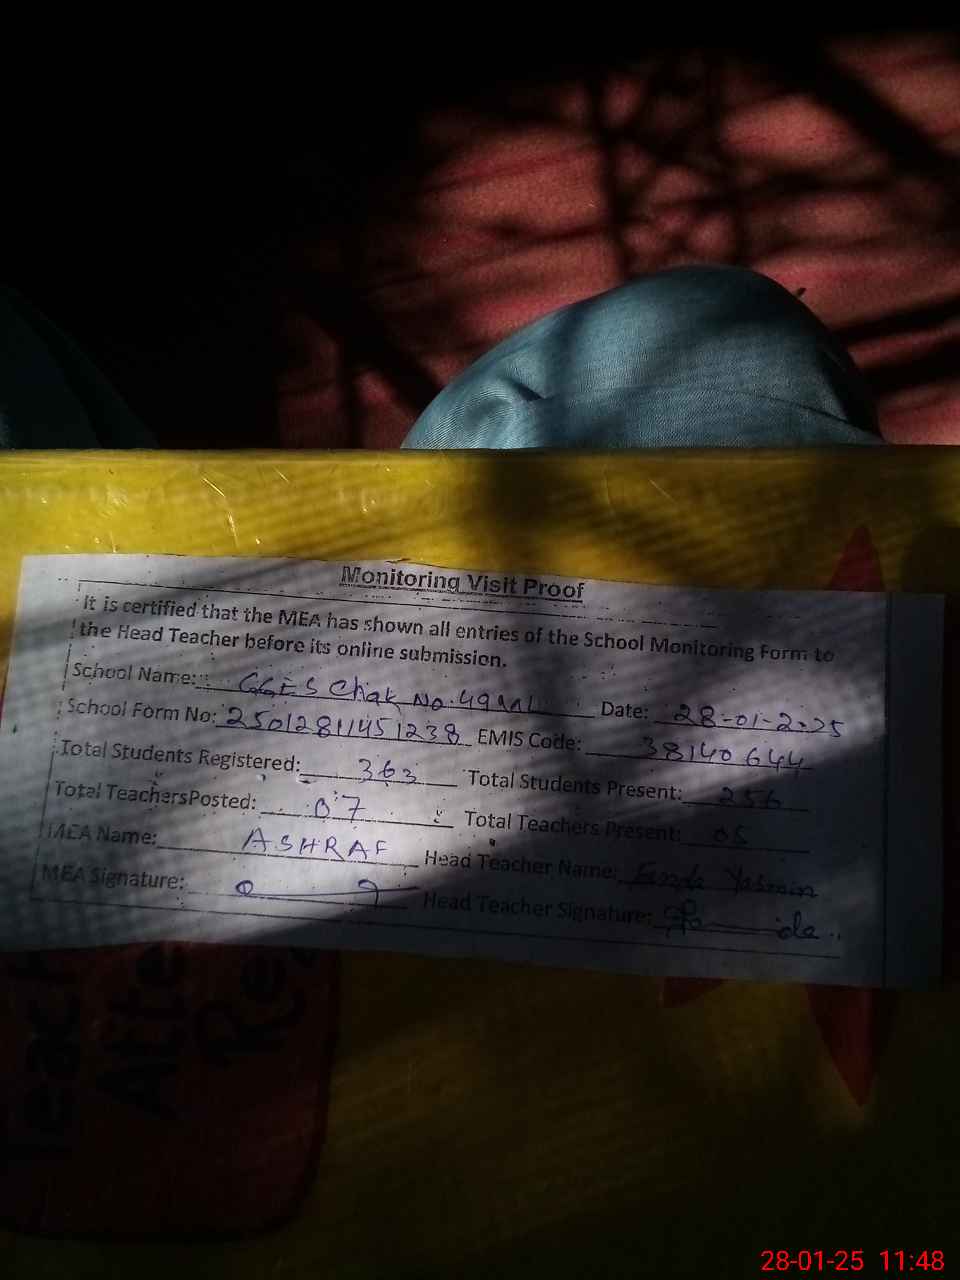 Monitoring Visit Proof
It is certified that the MEA has shown all entries of the School Monitoring Form to
the Head Teacher before its online submission.
School Name: GGES Chak No. 49 Date: 28-01-2025
School Form No: 25012811451238 EMIS Code: 38140644
Total Students Registered: 363 Total Students Present: 256
Total TeachersPosted: 07 Total Teachers Present: 05
MEA Name: ASHRAF Head Teacher Name: Yasmin
MEA Signature: Head Teacher Signature:
Teach
Afte
Re
28-01-25 11:48